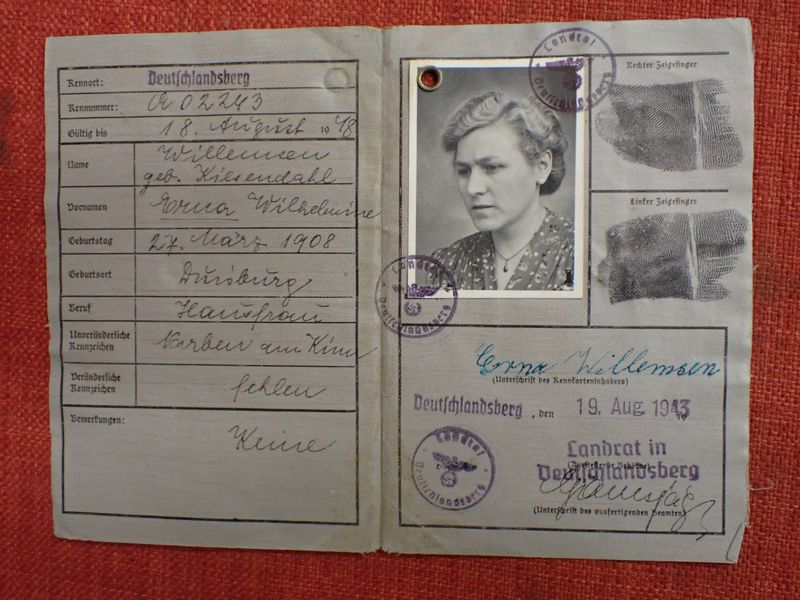 Kennort: Deutschlandsberg
Kennummer: A 02243
Gültig bis 18. August 1948
Name Willemsen
geb. Kiesendahl
Vornamen Erna Wilhelmine
Geburtstag 27. März 1908
Geburtsort Duisburg
Beruf Hausfrau
Unveränderliche Kennzeichen Narben am Kinn
Veränderliche Kennzeichen fehlen
Bemerkungen: Keine
Landrat
Deutschlandsberg
Rechter Zeigefinger
Linker Zeigefinger
Landrat
Deutschlandsberg
Erna Willemsen
(Unterschrift des Kennkarteninhabers)
Deutschlandsberg, den 19. Aug 1943
19
Landrat
Deutschlandsberg
Landrat in
(Ausstellende Behörde)
Deutschlandsberg
(Unterschrift des ausfertigenden Beamten)